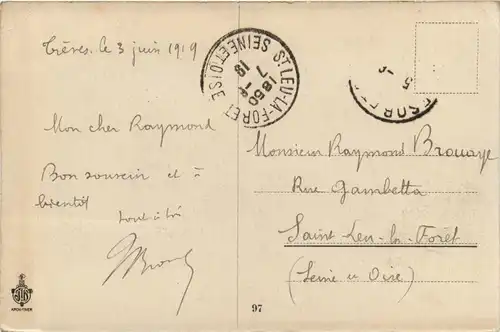 Trèves, le 3 juin 1919
Mon cher Raymond
Bon souvenir et à
bientôt
tout à toi
ST LEU-LA-FORET
SEINE ET OISE
18 50
7 - 7
19
Monsieur Raymond Brouaye
Rue Gambetta
Saint Leu la Forêt
(Seine et Oise)
97